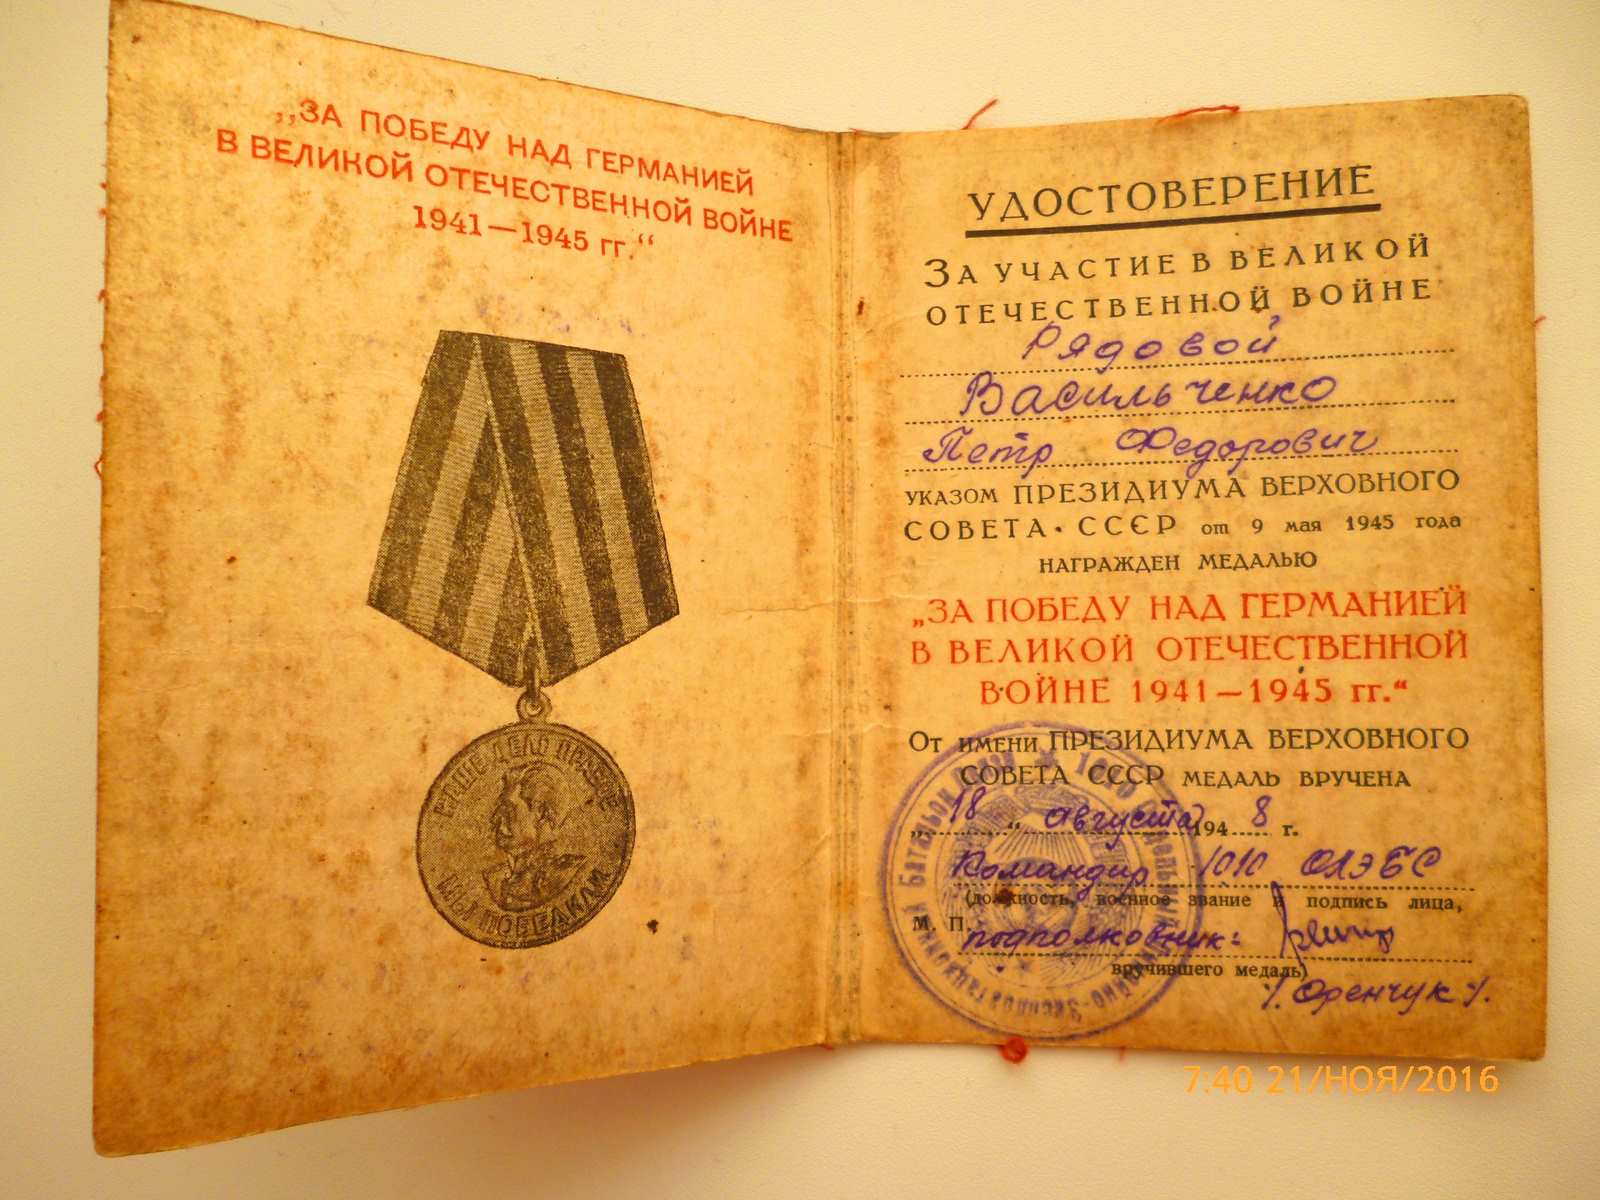 „ЗА ПОБЕДУ НАД ГЕРМАНИЕЙ
В ВЕЛИКОЙ ОТЕЧЕСТВЕННОЙ ВОЙНЕ
1941—1945 гг.“
НАШЕ ДЕЛО ПРАВОЕ
МЫ ПОБЕДИЛИ
УДОСТОВЕРЕНИЕ
ЗА УЧАСТИЕ В ВЕЛИКОЙ
ОТЕЧЕСТВЕННОЙ ВОЙНЕ
Рядовой
Васильченко
Петр Федорович
УКАЗОМ ПРЕЗИДИУМА ВЕРХОВНОГО
СОВЕТА СССР от 9 мая 1945 года
НАГРАЖДЕН МЕДАЛЬЮ
„ЗА ПОБЕДУ НАД ГЕРМАНИЕЙ
В ВЕЛИКОЙ ОТЕЧЕСТВЕННОЙ
ВОЙНЕ 1941—1945 гг.“
От имени ПРЕЗИДИУМА ВЕРХОВНОГО
СОВЕТА СССР МЕДАЛЬ ВРУЧЕНА
„18“ августа 1948 г.
Командир 1010 ОЛЭБС
(должность, военное звание и подпись лица,
М. П. подполковник:
вручившего медаль)
/Оренчук/.
Батальон
7:40 21/НОЯ/2016